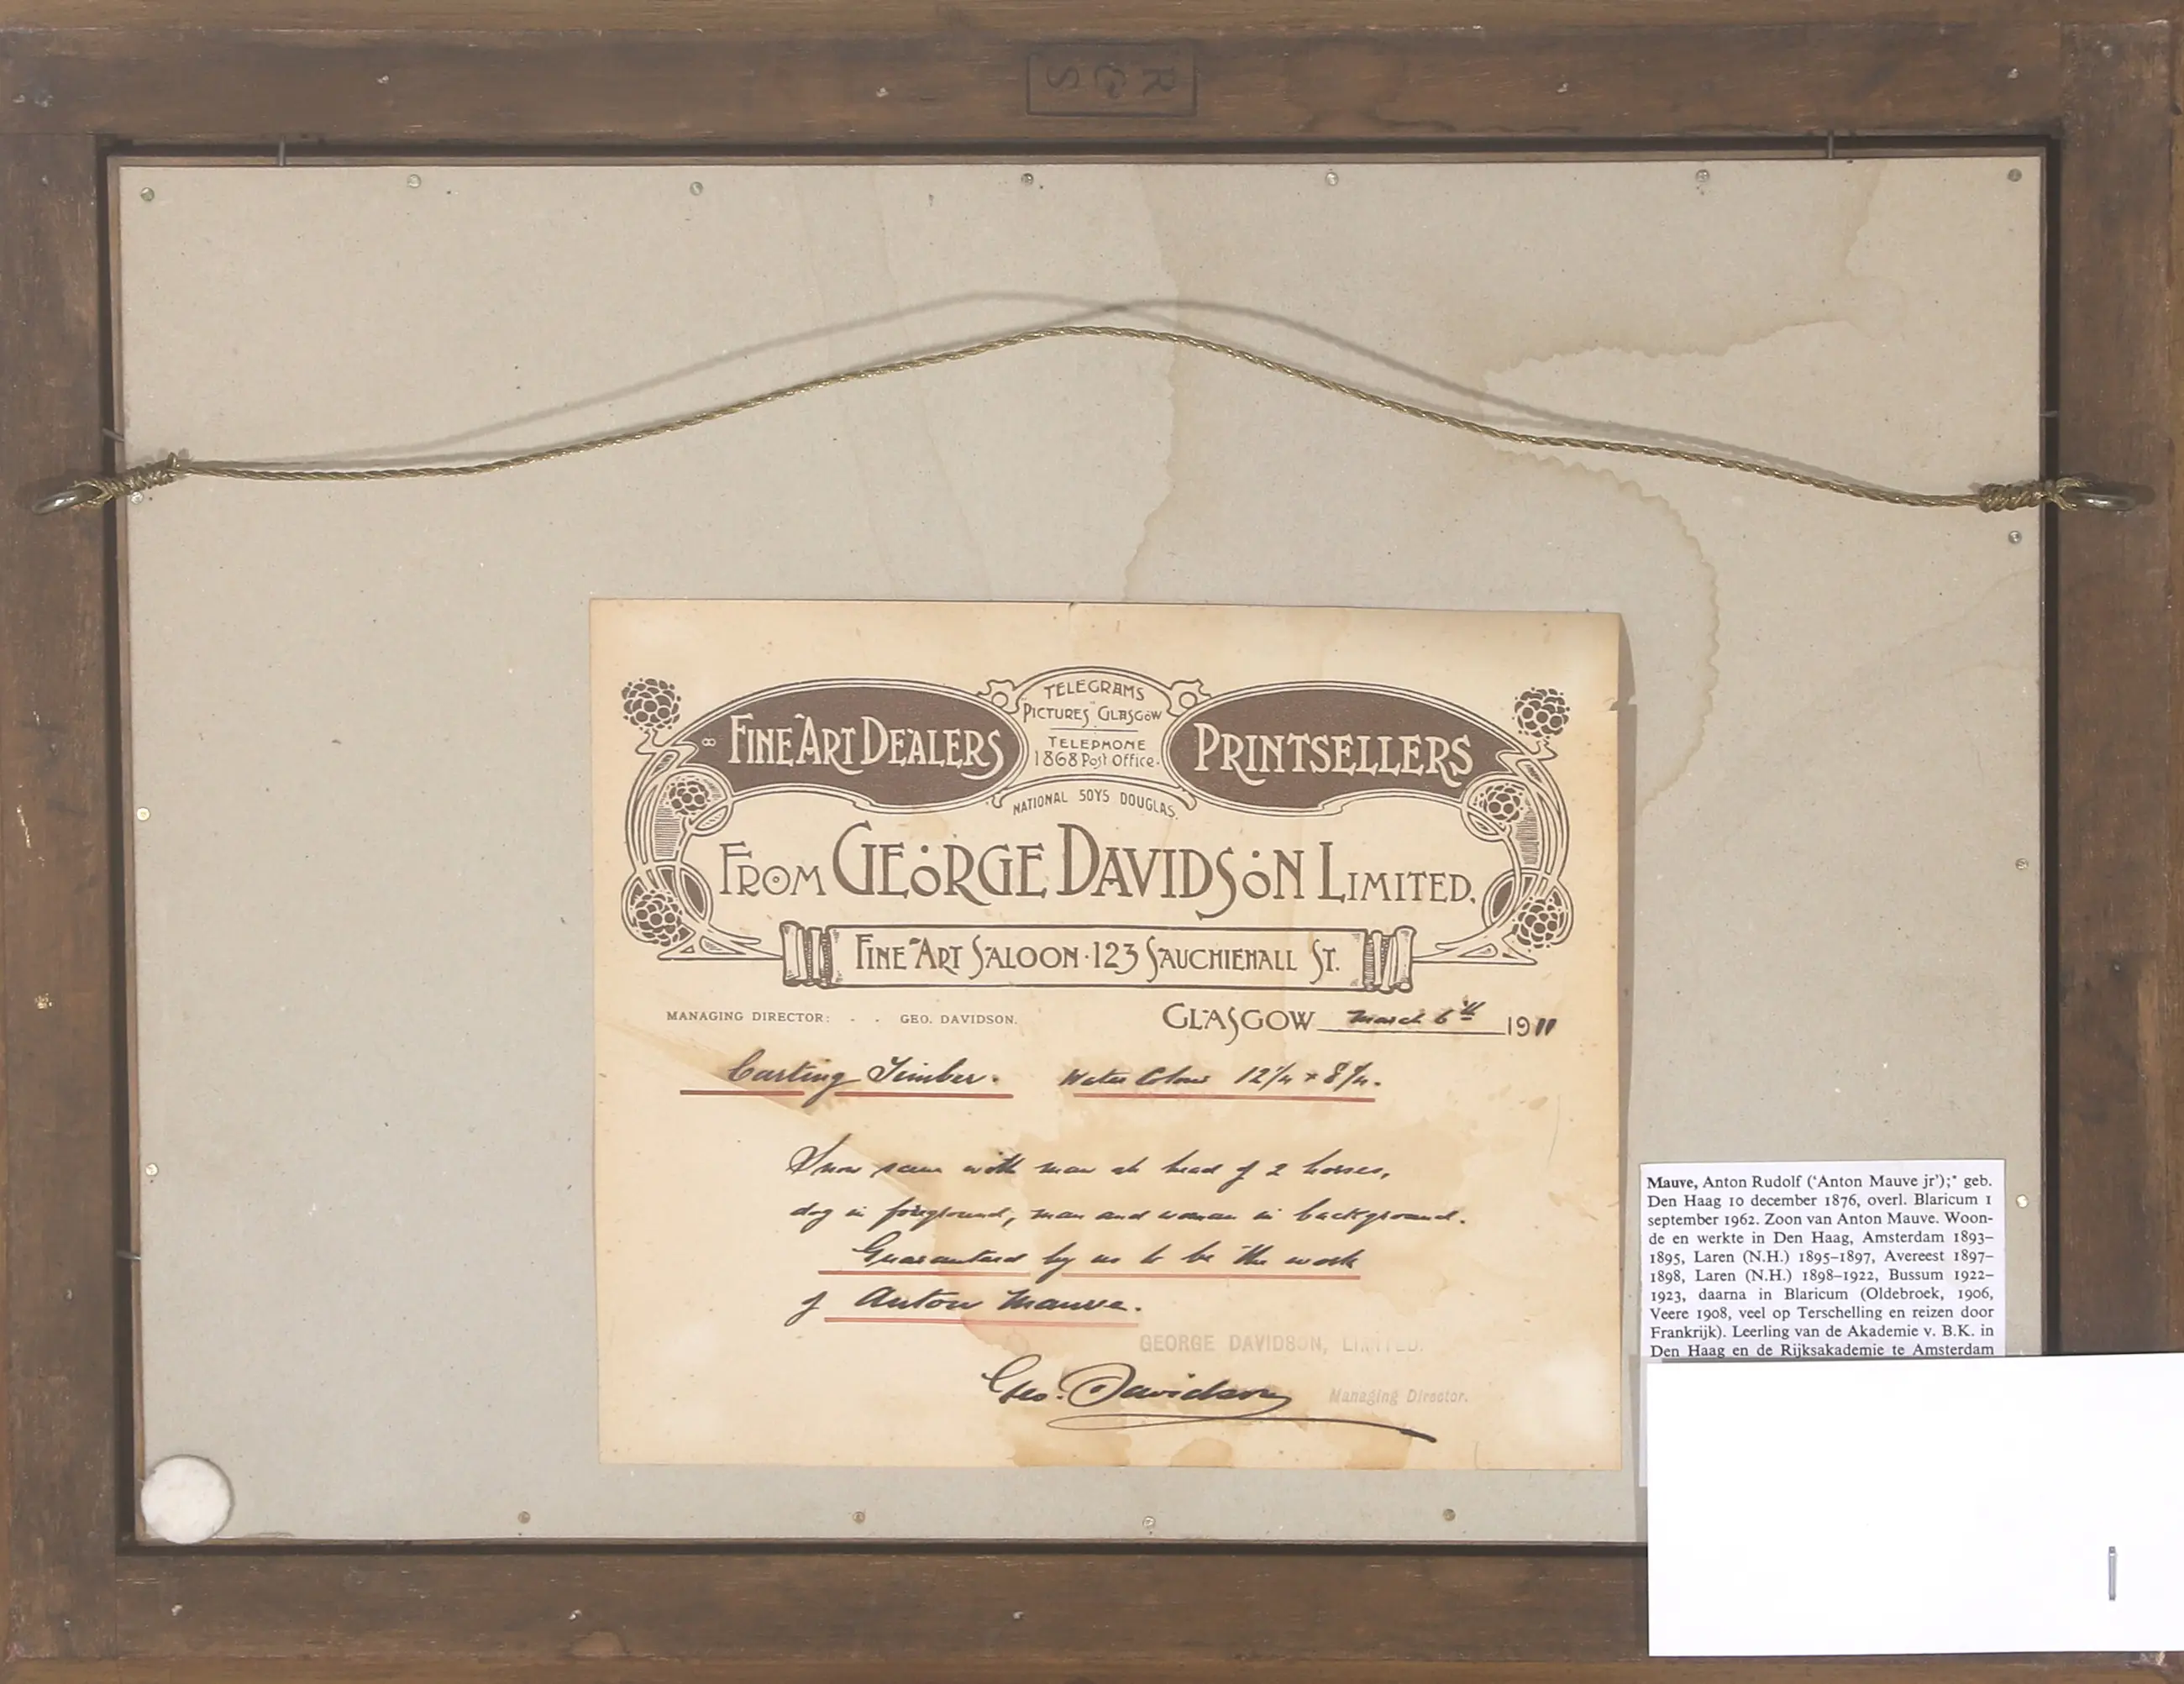 R G S
TELEGRAMS
"PICTURES GLASGOW
TELEPHONE
1868 Post Office.
NATIONAL 5075 DOUGLAS.
FINE ART DEALERS
PRINTSELLERS
FROM GEORGE DAVIDSON LIMITED.
FINE ART SALOON · 123 SAUCHIEHALL ST.
MANAGING DIRECTOR: - - GEO. DAVIDSON.
GLASGOW March 6th 1911
Carting Timber. Water Colour
Snow scene with man at head of 2 horses,
dog in foreground, man and woman in background.
Guaranteed by us to be the work
of Anton Mauve.
GEORGE DAVIDSON, LIMITED.
Geo. Davidson Managing Director.
Mauve, Anton Rudolf (‘Anton Mauve jr’);* geb.
Den Haag 10 december 1876, overl. Blaricum 1
september 1962. Zoon van Anton Mauve. Woon-
de en werkte in Den Haag, Amsterdam 1893–
1895, Laren (N.H.) 1895–1897, Avereest 1897–
1898, Laren (N.H.) 1898–1922, Bussum 1922–
1923, daarna in Blaricum (Oldebroek, 1906,
Veere 1908, veel op Terschelling en reizen door
Frankrijk). Leerling van de Akademie v. B.K. in
Den Haag en de Rijksakademie te Amsterdam